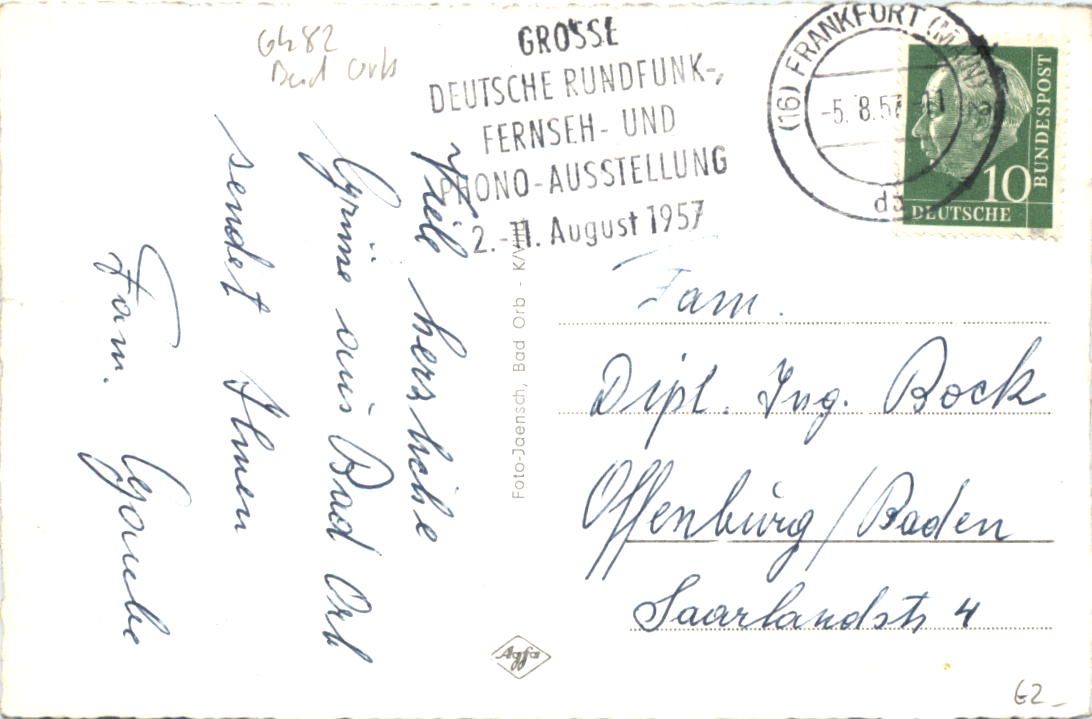 6482
Bad Orb
GROSSE
DEUTSCHE RUNDFUNK-,
FERNSEH- UND
PHONO-AUSSTELLUNG
2.-11. August 1957
(16) FRANKFURT (MAIN) 2
-5. 8. 57 -11
da
10
DEUTSCHE
BUNDESPOST
Viele herzliche
Grüsse aus Bad Orb
sendet Ihnen
Fam.
Foto-Jaensch, Bad Orb -
Fam.
Dipl. Ing. Bock
Offenburg/Baden
Saarlandstr 4
Agfa
62